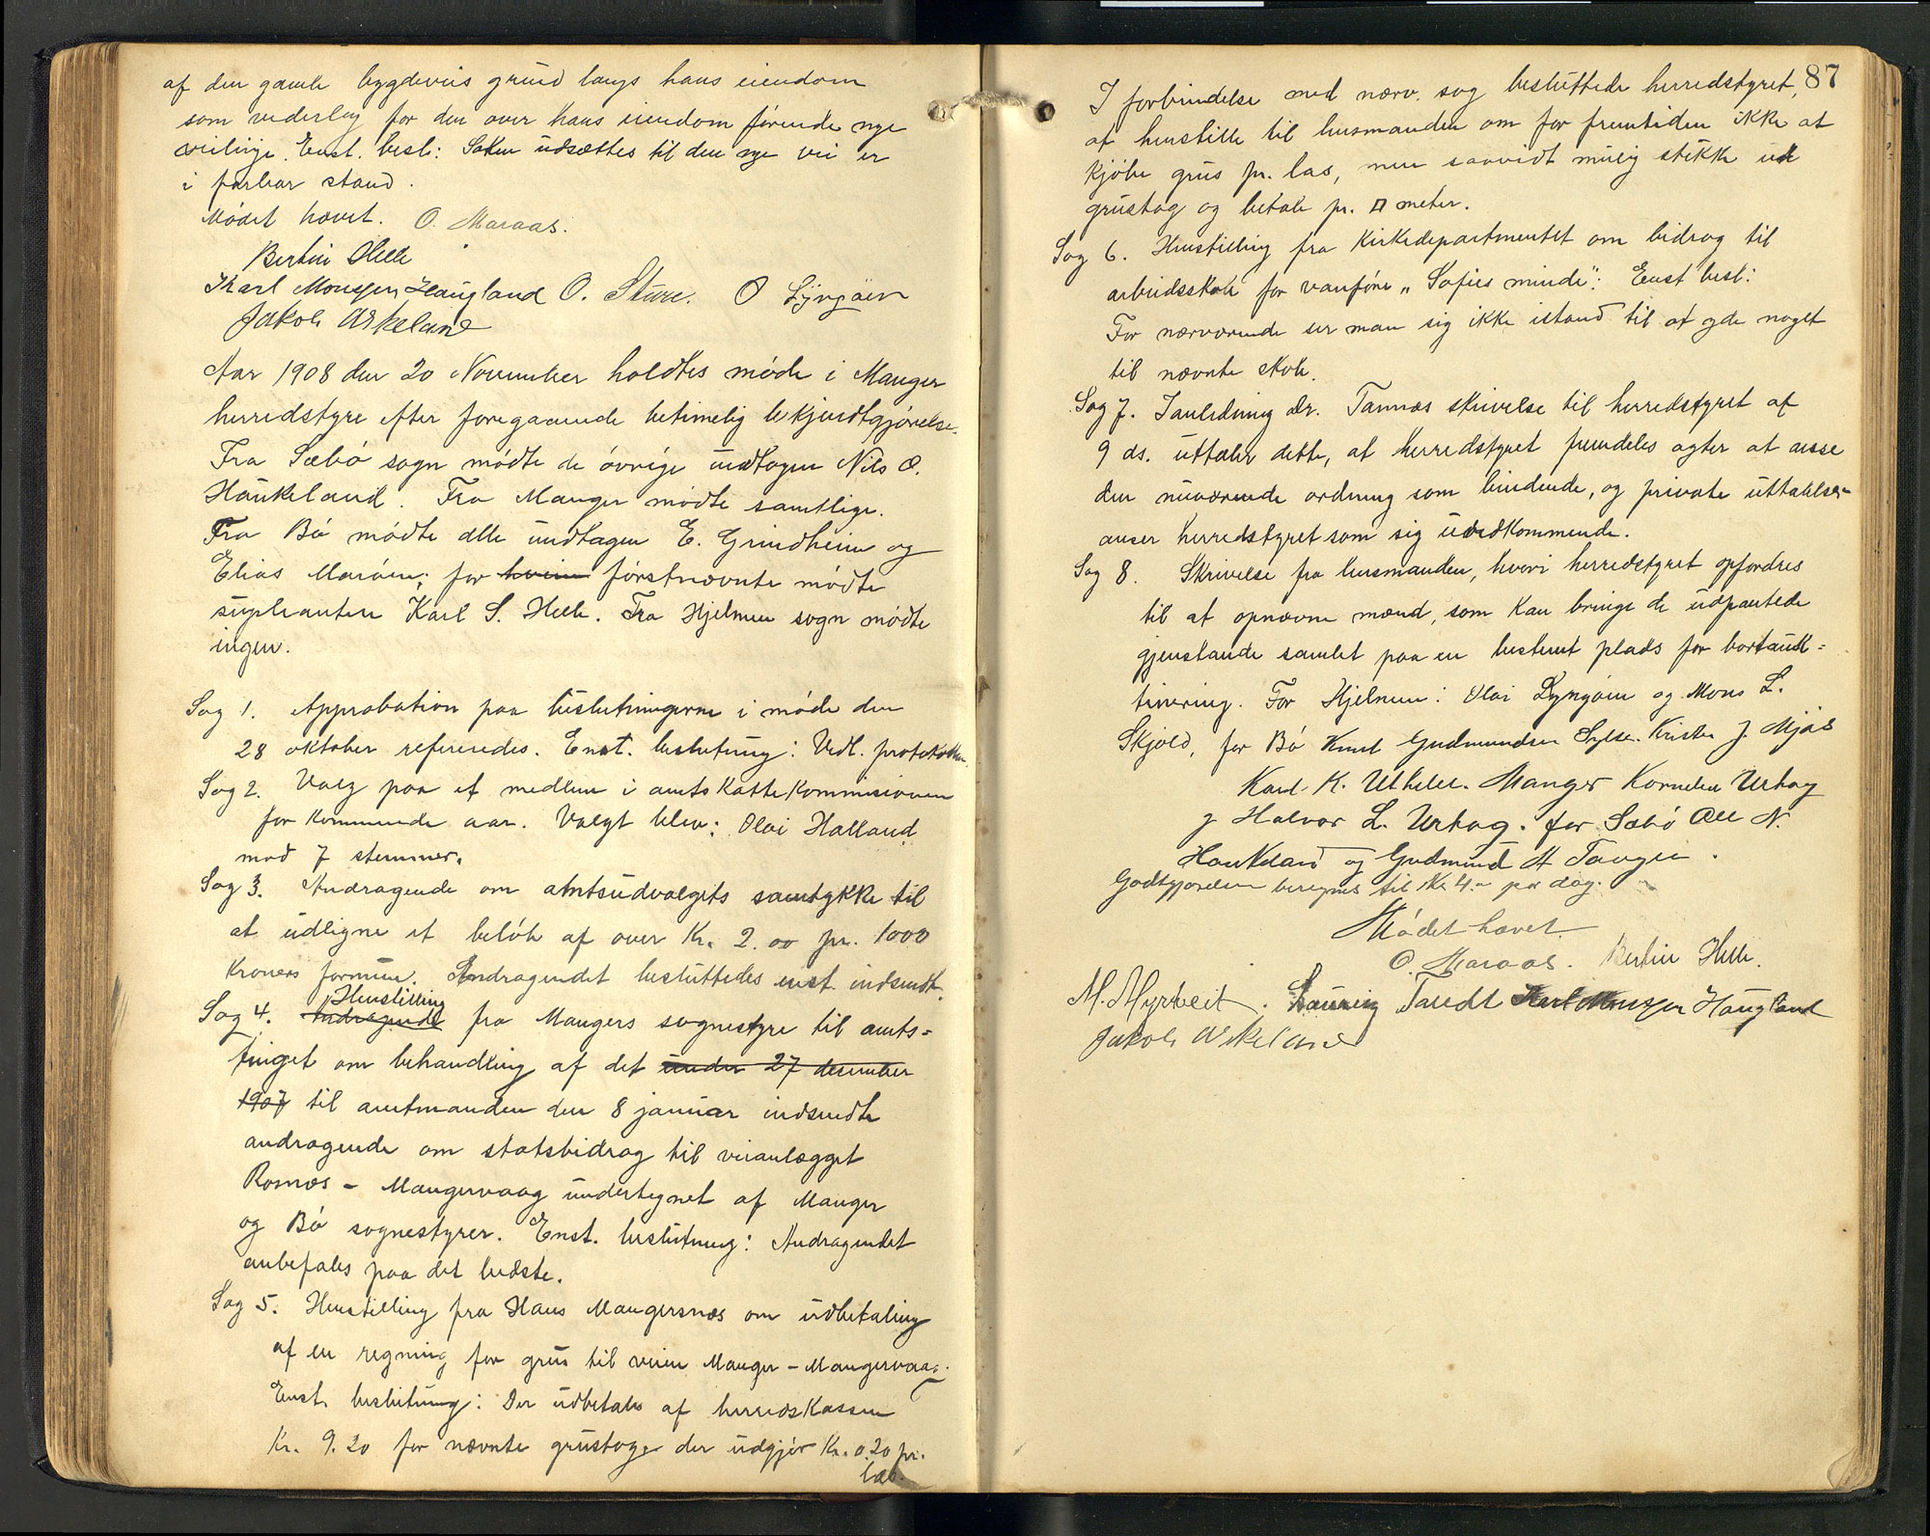 af den gamle bygdeveis grund langs hans eiendom
som vederlag for den over hans eiendom førende nye
veilinje. Enst. besl: Saken udsættes til den nye vei er
i farbar stand.
Mødet hævet. O. Maraas.
Bertin Helle
Karl Monssen Haugland O. Sture. O Lyngøen
Jakob Askeland
Aar 1908 den 20 November holdtes møde i Manger
herredstyre efter foregaaende betimelig bekjendtgjørelse.
Fra Sæbø sogn mødte de øvrige undtagen Nils O.
Haukeland. Fra Manger mødte samtlige.
Fra Bø mødte alle undtagen E. Grindheim og
Elias Marøen; for hvem førstnævnte mødte
supleanten Karl S. Helle. Fra Hjelmen sogn mødte
ingen.
Sag 1. Approbation paa beslutningerne i møde den
28 oktober refereredes. Enst. beslutning: Vedl. protokollen.
Sag 2. Valg paa et medlem i amtskattekommisionen
for kommende aar. Valgt blev: Olai Halland
med 7 stemmer.
Sag 3. Andragende om amtsudvalgets samtykke til
at udligne et beløb af over Kr. 2.00 pr. 1000
Kroners formue. Andragendet besluttedes enst. indsendt.
Henstilling
Sag 4. Andragende fra Mangers sognestyre til amts=
tinget om behandling af det under 27 desember
1907 til amtmanden den 8 januar indsendte
andragende om statsbidrag til veianlægget
Rosnæs – Mangervaag undertegnet af Manger
og Bø sognestyrer. Enst. beslutning: Andragendet
anbefales paa det bedste.
Sag 5. Henstilling fra Hans Mangersnæs om udbetaling
af en regning for grus til veien Manger – Mangervaag.
Enst. beslutning: Der udbetales af herredskassen
Kr. 9.20 for nævnte grustage der udgjør Kr. 0.20 pr.
læs.
87
I forbindelse med nærv. sag besluttede herredstyret,
at henstille til lensmanden om for fremtiden ikke at
kjøbe grus pr. las, men saavidt mulig stikke ud
grustag og betale pr. □ meter.
Sag 6. Henstilling fra Kirkedepartmentet om bidrag til
arbeidsskole for vanføre „Sofies minde": Enst besl:
For nærværende ser man sig ikke istand til at yde noget
til nævnte skole.
Sag 7. I anledning dr. Tannæs skrivelse til herredstyret af
9 ds. uttaler dette, at herredstyret fremdeles agter at anse
den nuværende ordning som bindende, og private uttalelser
anser herredstyret som sig uvedkommende.
Sag 8. Skrivelse fra lensmanden, hvori herredstyret opfordres
til at opnævne mænd, som kan bringe de udpantede
gjenstande samlet paa en bestemt plads for bortauk=
tionering. For Hjelmen: Olai Lyngøen og Mons L.
Skjold, for Bø Knut Gudmundsen Sylte. Kristen J. Mjøs
Karl K. Utkilen. Manger Kornelius Urhaug
J Halvor L. Urhaug. for Sæbø Ole N.
Haukeland og Gudmund A Tangen.
Godtgjørelsen beregnes til Kr 4.– pr dag.
Mødet hævet.
O. Maraas. Bertin Helle.
M. Myrtveit. Lauritz Tvedt Karl Monssen Haugland
Jakob Askeland